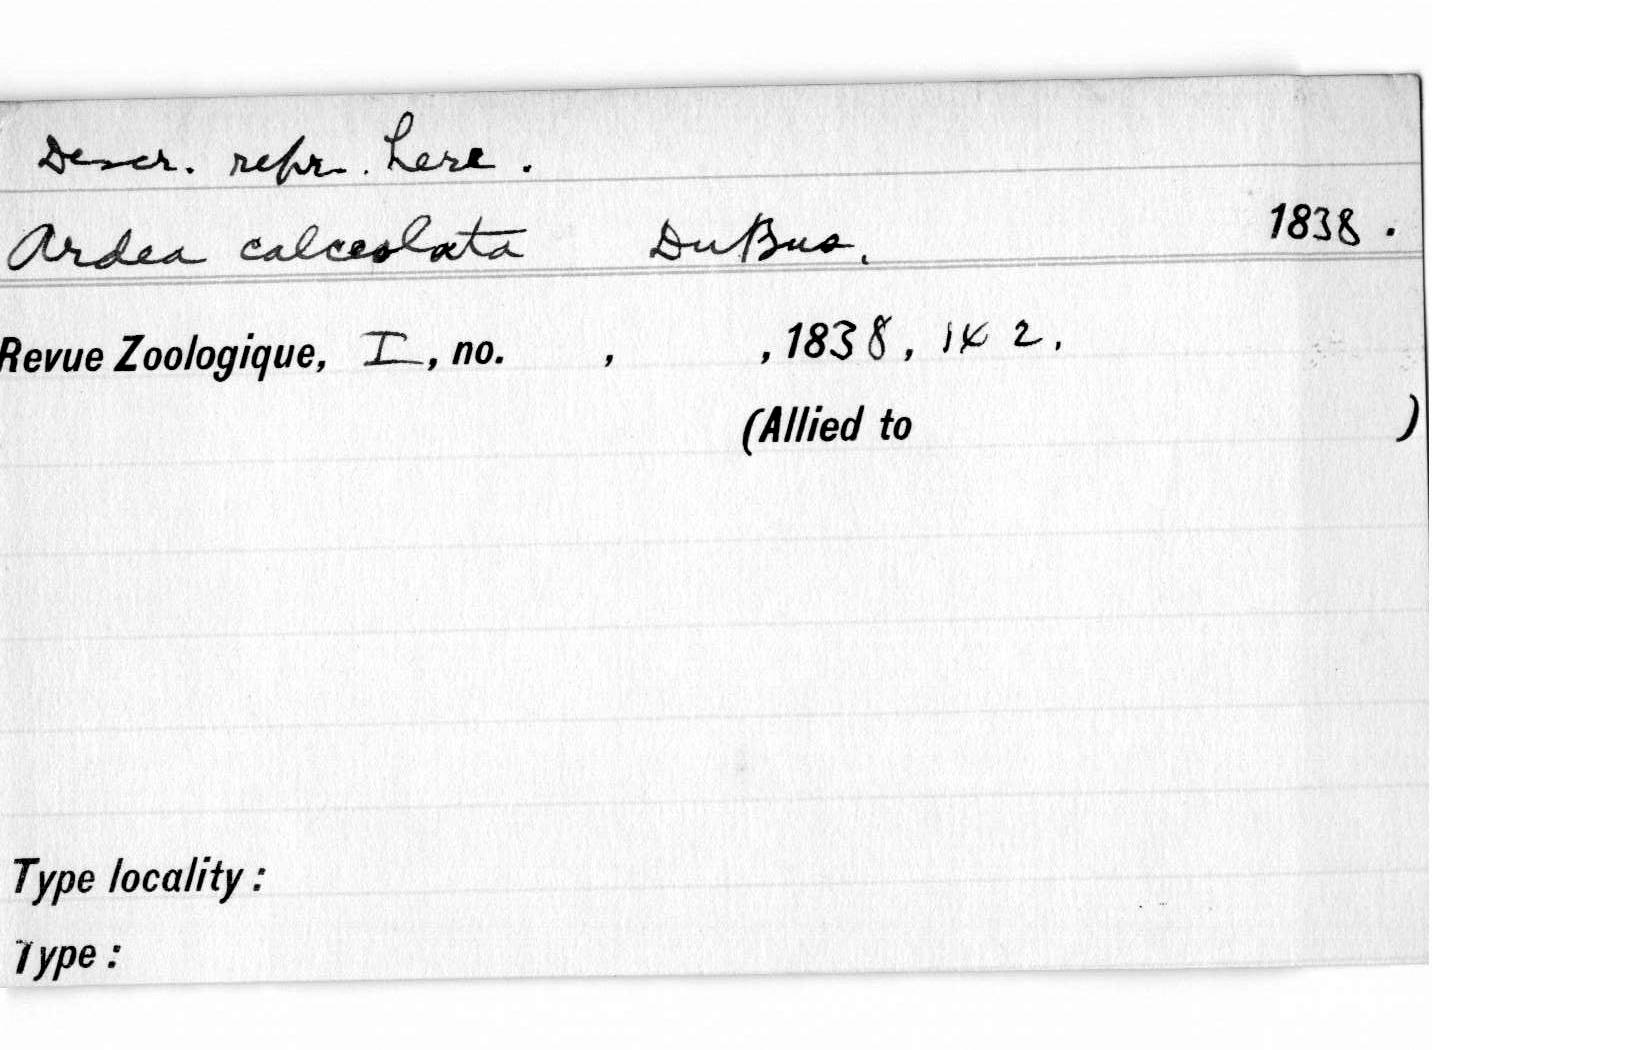 Descr. repr. here.
Ardea calceolata DuBus. 1838.
Revue Zoologique, I, no. , , 1838, 142.
(Allied to )
Type locality:
Type: